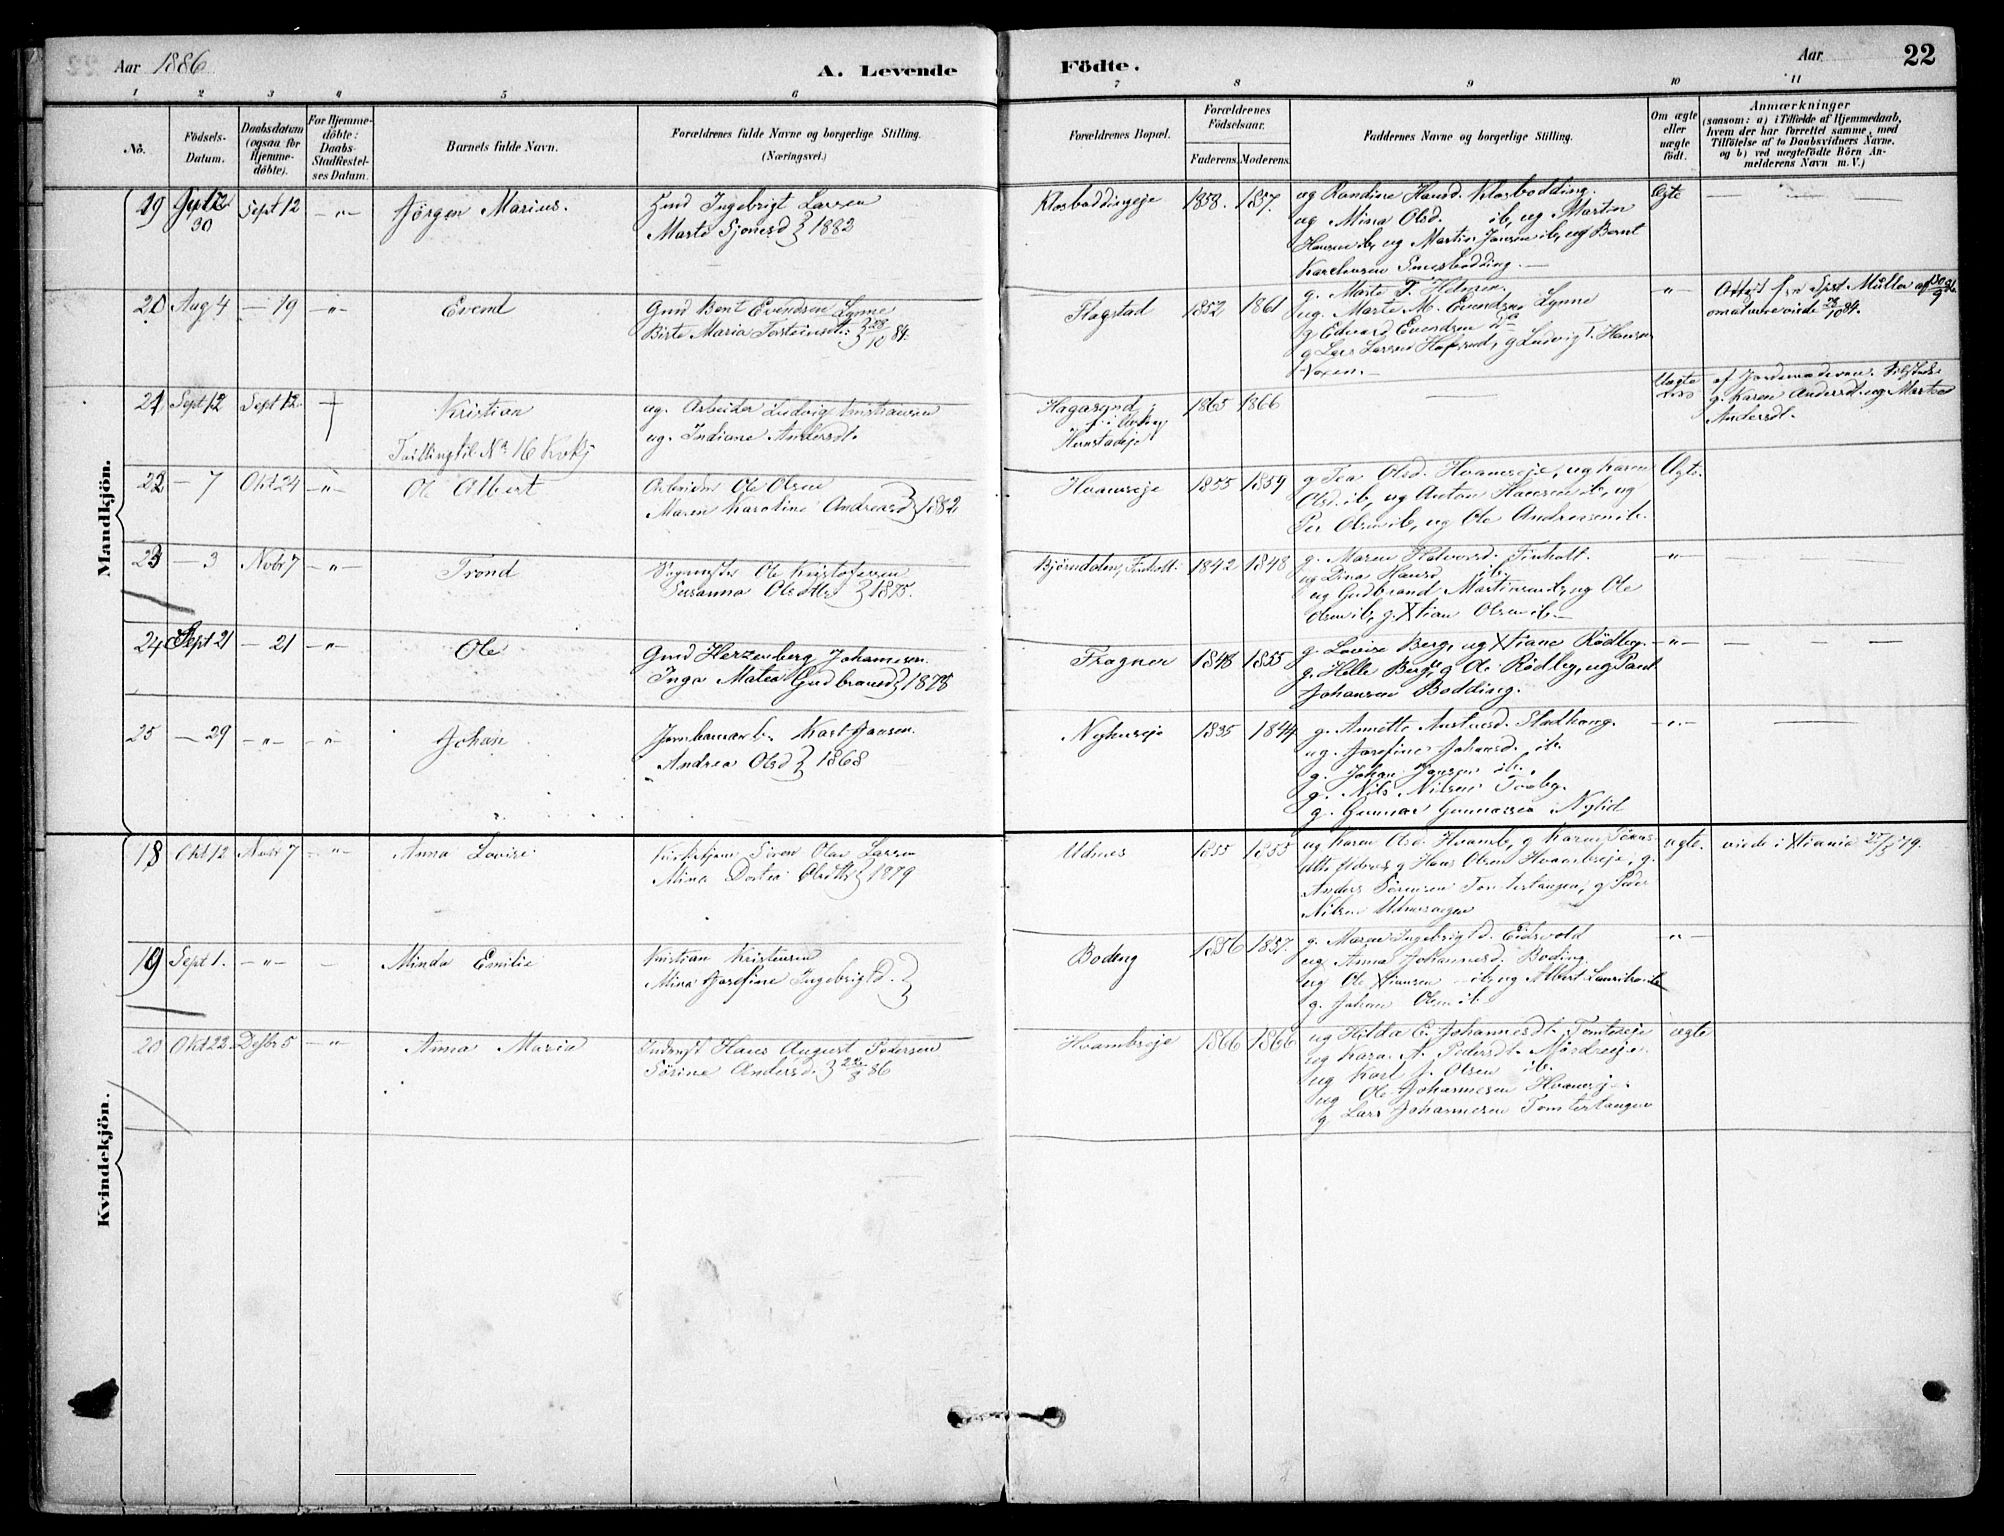 Aar 1886
A. Levende Födte.
Aar 22
1 2 3 4 5 6 7 8 9 10 11
No.
Födsels-Datum.
Daabsdatum (ogsaa for Hjemme-döbte).
For Hjemme-döbte: Daabs-Stadfæstel-ses Datum.
Barnets fulde Navn.
Forældrenes fulde Navne og borgerlige Stilling. (Næringsvei.)
Forældrenes Bopæl.
Forældrenes Födselsaar.
Faderens. Moderens.
Faddernes Navne og borgerlige Stilling.
Om ægte eller uægte födt.
Anmærkninger
(saasom: a) i Tilfælde af Hjemmedaab,
hvem der har forrettet samme, med
Tilföielse af to Daabsvidners Navne,
og b) ved uægtefödte Börn An-
melderens Navn m. V.)
Mandkjön.
19 30 Sept 12 -"- Jörgen Marius.
Gmd Ingebrigt Larsen
Marte 1882
1858. 1857.
ug Randine Hansd. Klosbodding.
ug Mina Olsd. ib, ug Martin
Hansen ib, ug Martin Jansen ib, ug Bernt
Kareliusen
Ægte — —
20 Aug 4 — 19 -"- Evend
Gmd Bent Evendsen Lynne
Birte Maria Torsteinsdt. 23/10 84.
Flagstad 1852 1861
g. Marte T.
ug. Marte M. Evendsen Lynne
g Edvard Evendsen do
g Lars Larsen g Ludvig T. Hansen
-"-
Attest fra Sgpr Müller af 30/9 86.
om at være viede 23/10 84.
21 Sept 12 Sept 12. † Kristian
Tvilling til No 16 Kvkj
ug. Arbeider Ludvig Kristiansen
ug. Indiane Andersdt.
1865 1866
Uægte
af Jordemoderen.
g. Karen Andersdt. ug Martea
Andersdt.
22 — 7 Okt 24 -"- Ole Albert
Ole Olsen
Maren Karoline Andreasd 1882
Hvamseje 1855 1859
g Tea Olsd. Hvamseje, ug Karen
Olsd. ib, ug Anton Hansen ib, ug
Per Olsen ib, ug Ole Andreasen ib.
Ægte.
23 — 3 Novbr 7 -"- Trond
Ole Kristofersen
Susanna Olsdtr 1875.
Björndalen, Finholt. 1842 1848
g. Maren Halvorsd. Finholt.
ug Dina Hansd ib.
ug Gudbrand Martinsen ib, ug Ole
Olsen ib, g. Xtian Olsen ib
-"- — —
24 Sept 21 — 21 -"- Ole
Gmd Herzenberg Johannesen.
Inga Matea Gudbransd 1878
Fragner 1848 1855
g. Lovise Berg, ug Xtiane Rödby
g. Helle Berg, g Ole Rödby, ug Paul
Johansen Bodding.
-"- — — —
25 — 29 -"- -"- Johan
Karl Jansen.
Andrea Olsd 1868
1835 1844
g. Annette
ug. Josefine Johansd. ib.
g. Johan Jansen ib.
g. Nils Nilsen
g. Gunnar Gunnarsen Nylid
-"- —
Kvindekjön.
18 Okt 12 Novbr 7 -"- Anna Lovise.
Sören Olaf Larsen
Mina Dortea Olsdtr 1879
Udnes 1855 1855
ug Karen Olsd. Hvamb, g Karen
Udnes, g Hans Olsen Hvambseje, g.
Anders Sörensen Tomtertangen, g Peder
Nilsen
ægte. viede i Xtiania 27/5 79.
19 Sept 1. -"- — Minda Emilie
Kristian Kristensen
Mina Josefine Ingebrigtd.
Bodeng 1856 1857.
g. Maren Ingebrigtd. Eidsvold
ug Anna Johannesd. Boding.
ug Ole Xtiansen — ib, ug Albert
g. Johan Olsen ib
-"-
20 Okt 22. Desbr 5 -"- Anna Marie
Hans August Pedersen
Sörine Andersd. 86
Hvambseje 1866 1866
ug Hilda E. Johannesdt. Tomtereje
ug Karen A. Pedersdt.
ug Karl J. Olsen ib.
ug Ole Johannesen Hvamseje
g Lars Johannesen Tomtertangen
ægte